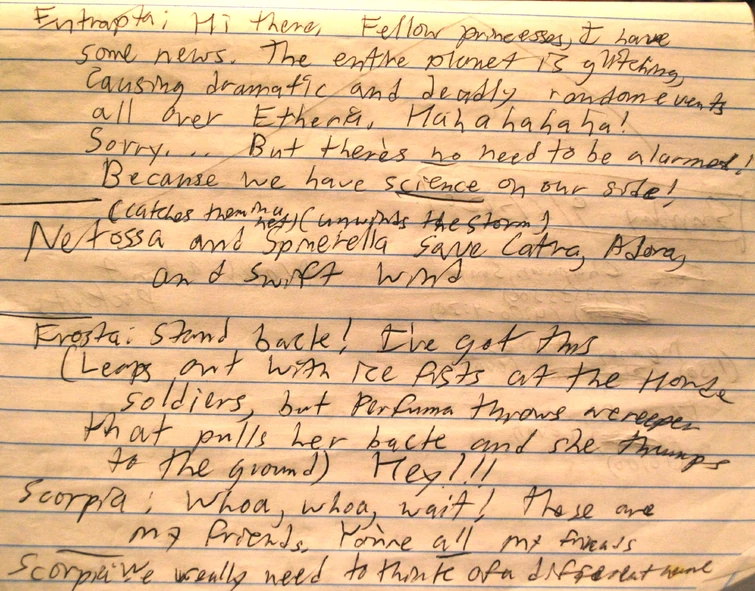 Entrapta: Hi there, Fellow princesses, I have
some news. The entire planet is glitching,
causing dramatic and deadly random events
all over Etheria. Hahahahaha!
Sorry... But there's no need to be alarmed!
Because we have science on our side!
(catches them in a net) (unwinds the storm)
Netossa and Spinerella save Catra, Adora,
and Swift Wind
Frosta: Stand back! I've got this
(Leaps out with ice fists at the Horde
soldiers, but Perfuma throws a creeper
that pulls her back and she thumps
to the ground) Hey!!!
Scorpia: Whoa, whoa, wait! These are
my friends. You're all my friends
Scorpia: We really need to think of a different name